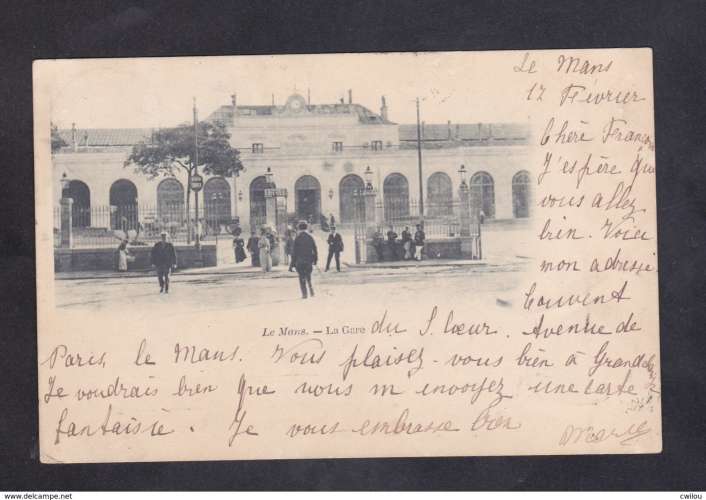 Le Mans
17 Février
Chère
J'espère que
vous allez
bien. Voici
mon adresse
Couvent
Le Mans. — La Gare du S. Cœur. Avenue de
Paris, le Mans. Vous plaisez-vous bien à
Je voudrais bien que vous m'envoyez une carte
fantaisie. Je vous embrasse bien
delcampe.net
cwilou